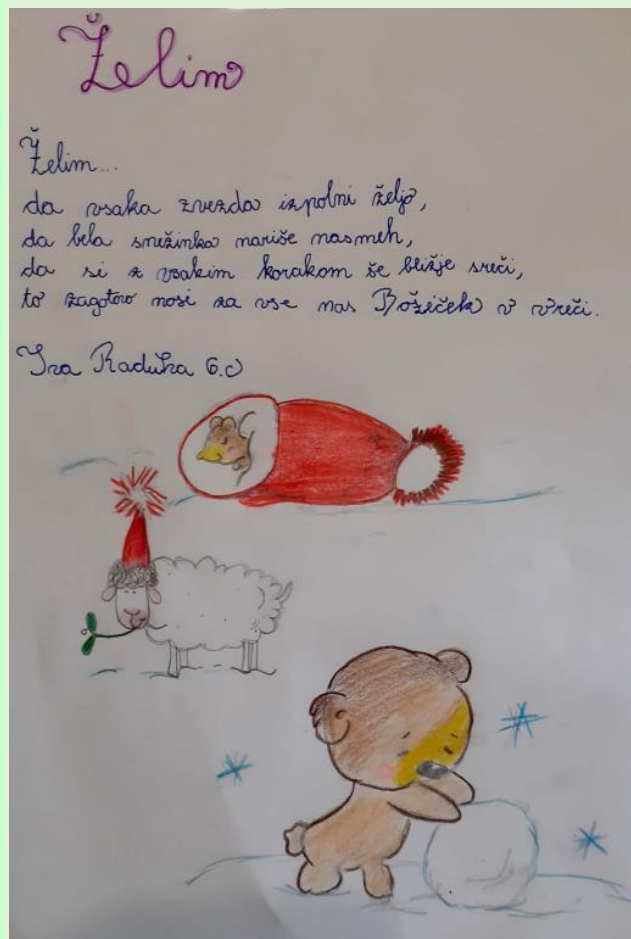 Želim
Želim...
da vsaka zvezda izpolni željo,
da bela snežinka nariše nasmeh,
da si z vsakim korakom še bližje sreči,
to zagotovo nosi za vse nas Božiček v vreči.
Iza Raduha 6.c